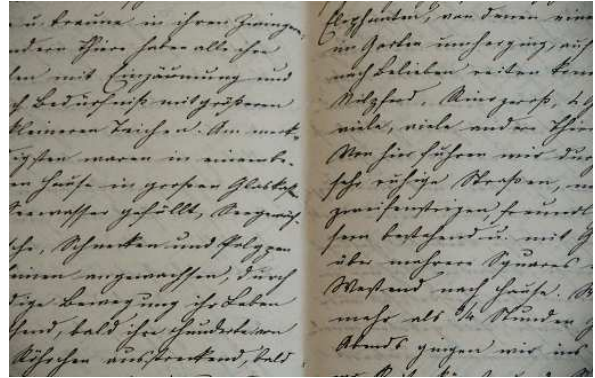 u. braune in ihren Zwingern,
andern Thiere haben alle ihre
mit Einzäunung und
Bedürfniß mit größeren
kleineren Teichen. Am merk-
igsten waren in einem be-
Hause in großen Glaskasten
Seewasser gefüllt, Seegewäch-
Schnecken und Polypen
angewachsen, durch
dige Bewegung ihr Leben
bald ihre hunderte von
Röhrchen ausstreckend, bald
Elephanten, von denen einer
im Garten umherging, auf
nach Belieben reiten kon
Nilpferd, Rinozeroß,
viele, viele andere Thier
Von hier fuhren wir durch
sehr ruhige Straßen, m
zweifenstrigen freundl
sern bestehend u. mit G
über mehrere Squares
Westend nach Hause. W
mehr als 3/4 Stunden
Abends gingen wir ins